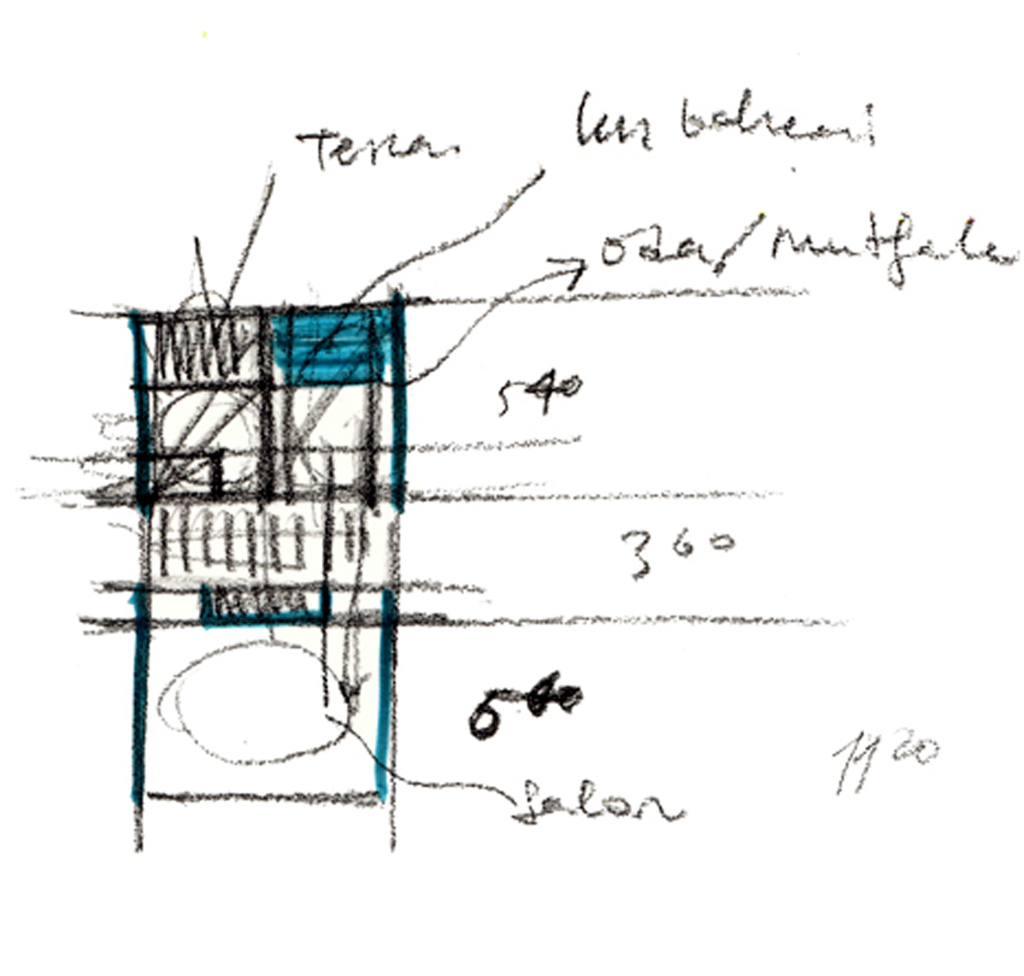 Teras
kış bahçesi
oda/mutfak
540
360
salon
1120